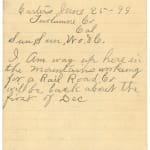 Carters June 25-99
Tuolumne Co
Cal
Sun Sun, Wo. & Co.
I Am way up here in
the mountains working
for a Rail Road Co
will be back about the
first of Dec